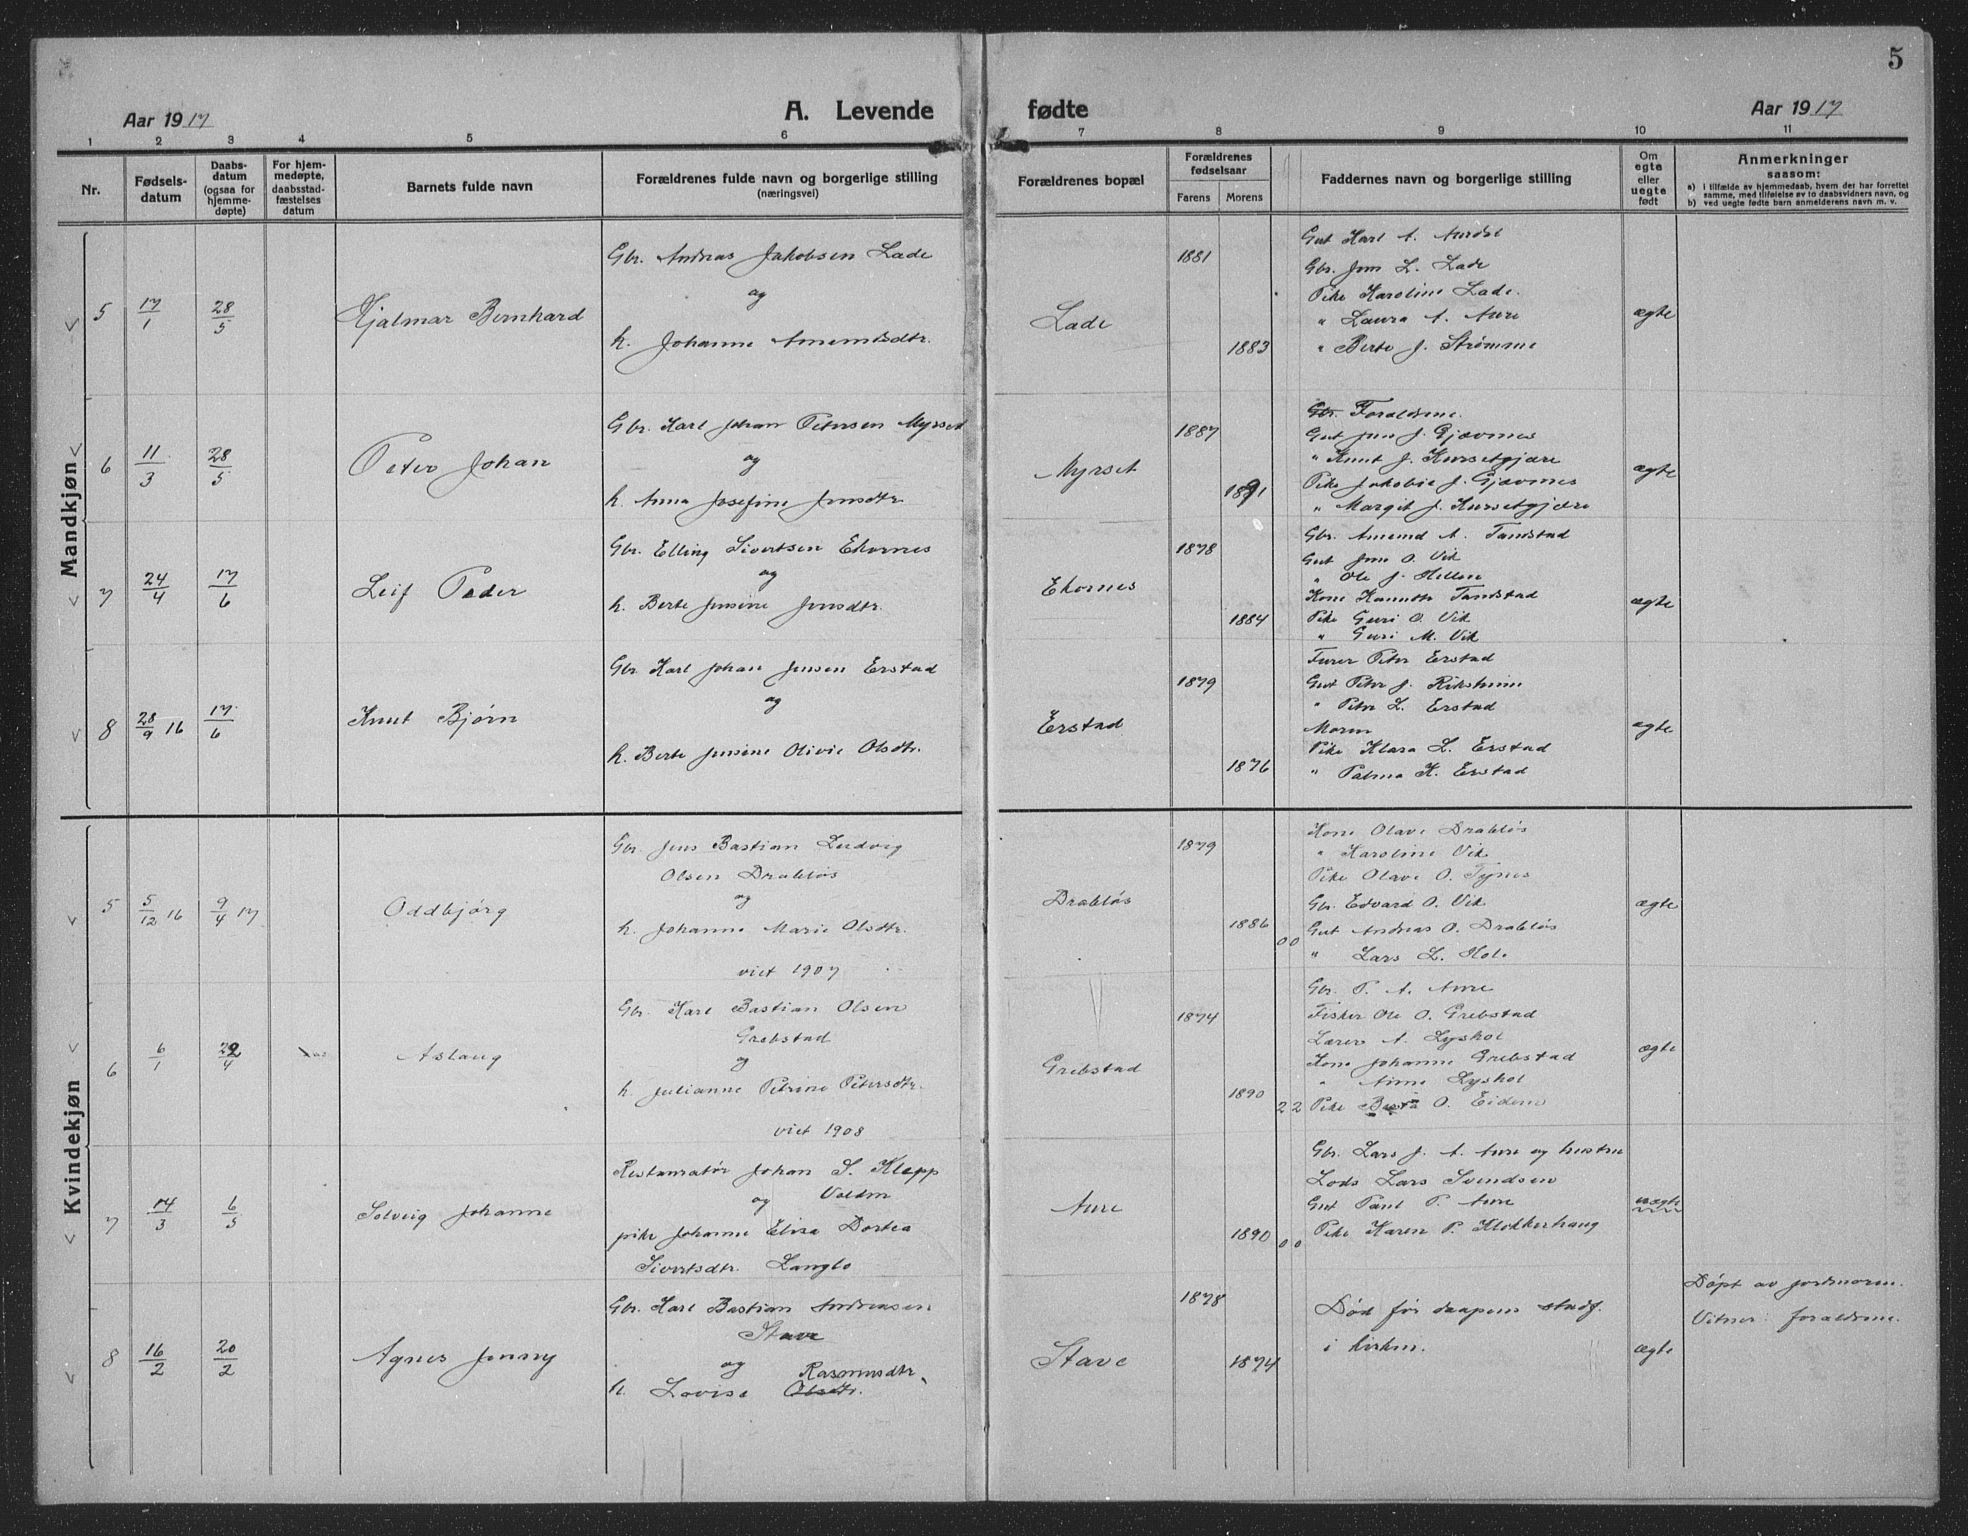 5
Aar 1917
A. Levende
fødte
Aar 1917
1 2 3 4 5 6 7 8 9 10 11
Nr.
Fødsels-
datum
Daabs-
datum
(ogsaa for
hjemme-
døpte)
For hjem-
medøpte,
daabsstad-
fæstelses
datum
Barnets fulde navn
Forældrenes fulde navn og borgerlige stilling
(næringsvei)
Forældrenes bopæl
Forældrenes
fødselsaar
Farens Morens
Faddernes navn og borgerlige stilling
Om
egte
eller
uegte
født
Anmerkninger
saasom:
a) i tilfælde av hjemmedaab, hvem der har forrettet
samme, med tilføielse av to daabsvidners navn, og
b) ved uegte fødte barn anmelderens navn m. v.
Mandkjøn
5 17/1 28/5 Hjalmar Bernhard
Gbr. Andreas Jakobsen Lade
og
h. Johanne Amundsdtr.
Lade
1881
1883
Gut Karl A.
Gbr. Jens L. Lade
Pike Karoline Lade.
" Laura A. Aure
" Berte J. Strømme
ægte
6 11/3 28/5 Peter Johan
Gbr. Karl Johan Petersen Myrset
og
h. Anna Josefine Jensdtr.
Myrset
1887
1891
Gbr. Forældrene.
Gut Jens J. Gjævenes
" Knut J. Kursetgjære
Pike Jakobie J. Gjævenes
" Margit J. Kursetgjære
ægte
7 24/4 17/6 Leif Peder
Gbr. Elling Sivertsen Ekornes
og
h. Berte Jensine Jensdtr.
Ekornes
1878
1884
Gbr. Amund A. Tandstad
Gut Jens O. Vik
" Ole J. Hellen
Kone Tandstad
Pike Guri O. Vik
" Guri M. Vik
ægte
8 28/9 16 17/6 Knut Bjørn
Gbr. Karl Johan Jensen Erstad
og
h. Berte Jensine Olivie Olsdtr.
Erstad
1879
1876
Furer Peter Erstad
Gut Peter J. Riksheim
" Peter L. Erstad
Moren
Pike Klara L. Erstad
" Palma K. Erstad
ægte
Kvindekjøn
5 5/12 16 9/4 17 Oddbjørg
Gbr. Jens Bastian Ludvig
Olsen Drabløs
og
h. Johanne Marie Olsdtr.
viet 1907
Drabløs
1879
1886
0 0
Kone Olave Drabløs
" Karoline Vik
Pike Olave O. Tynes
Gbr. Edvard O. Vik
Gut Andreas O. Drabløs
" Lars L. Hole
ægte
6 6/1 29/4 Aslaug
Gbr. Karl Bastian Olsen
Grebstad
og
h. Julianne Petrine Petersdtr.
viet 1908
Grebstad
1874
1890
2 2
Gbr. P. A. Aure
Fisker Ole O. Grebstad
Lærer A. Lyshol
Kone Johanne Grebstad
" Anne Lyshol
Pike Berta O. Eidem
ægte
7 14/3 6/5 Solveig Johanne
Restauratør Johan S. Klepp
og Volden
pike Johanne Elisa Dortea
Sivertsdtr. Langlo
Aure
1890
0 0
Gbr. Lars J. A. Aure og hustru
Lods Lars Svendsen
Gut Paul P. Aure
Pike Karen P. Klokkerhaug
uægte
8 16/2 20/2 Agnes Jenny
Gbr. Karl Bastian Andreasen
Stave
og Rasmusdtr.
h. Lovise Olsdtr.
Stave
1878
1874
Død før daapens stadf.
i kirken.
ægte
Døpt av jordmoren.
Vitner: forældrene.